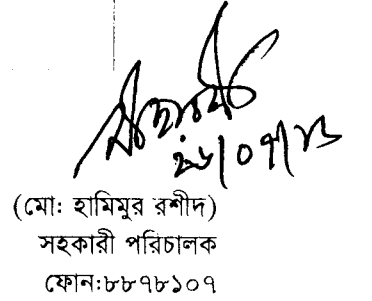 ২৬/০৭/১৬
(মো: হামিমুর রশীদ)
সহকারী পরিচালক
ফোন:৮৮৭৮১০৭